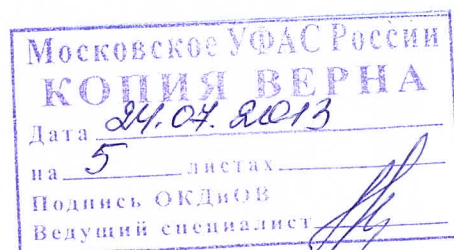 Московское УФАС России
КОПИЯ ВЕРНА
Дата 24.07.2013
на 5 листах
Подпись ОКДиОВ
Ведущий специалист